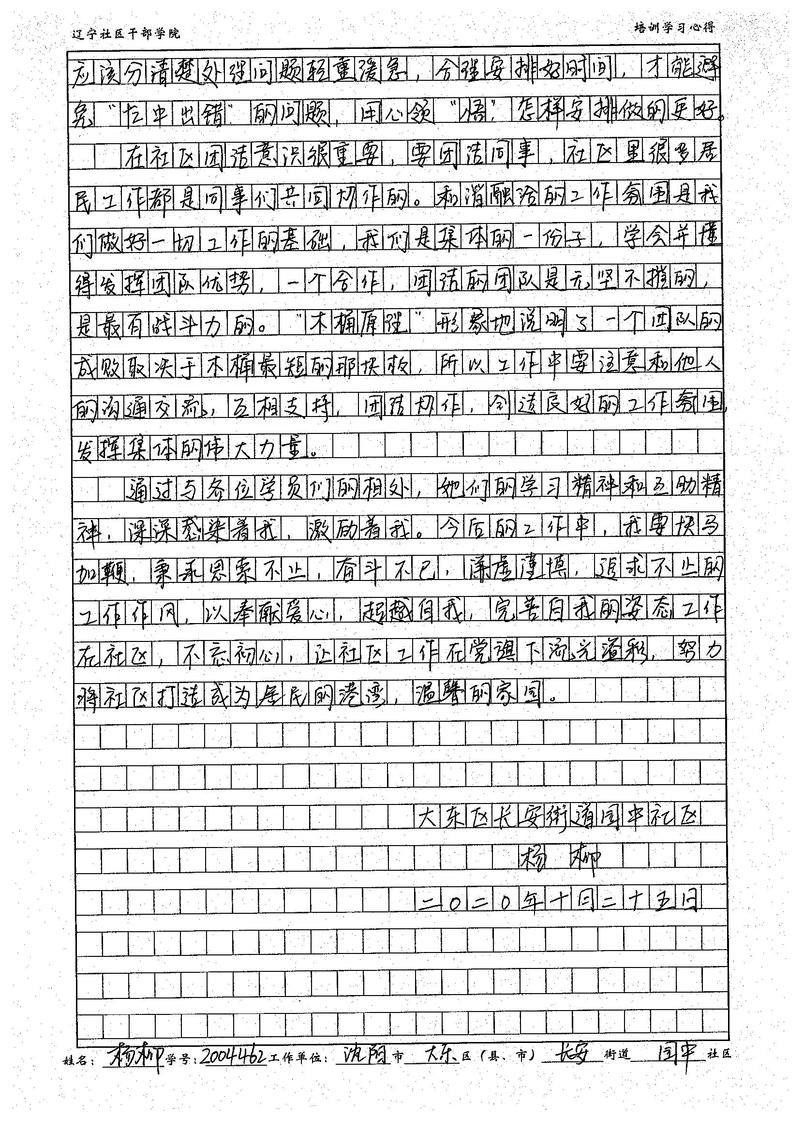 辽宁社区干部学院 培训学习心得
应该分清楚处理问题轻重缓急，合理安排好时间，才能避
免“忙中出错”的问题，用心领“悟”怎样安排做的更好。
在社区团结意识很重要，要团结同事，社区里很多居
民工作都是同事们共同协作的。和谐融洽的工作氛围是我
们做好一切工作的基础，我们是集体的一份子，学会并懂
得发挥团队优势，一个合作，团结的团队是无坚不摧的，
是最有战斗力的。“木桶原理”形象地说明了一个团队的
成败取决于木桶最短的那块板，所以工作中要注意和他人
的沟通交流，互相支持，团结协作，创造良好的工作氛围，
发挥集体的伟大力量。
通过与各位学员们的相处，她们的学习精神和互助精
神，深深感染着我，激励着我。今后的工作中，我要快马
加鞭，秉承思索不止，奋斗不已，谦虚谨慎，追求不止的
工作作风，以奉献爱心，超越自我，完善自我的姿态工作
在社区，不忘初心，让社区工作在党旗下流光溢彩，努力
将社区打造成为居民的港湾，温馨的家园。
大东区长安街道园中社区
杨柳
二〇二〇年十月二十五日
姓名：杨柳 学号：2004462 工作单位：沈阳市 大东区（县、市）长安街道 园中社区